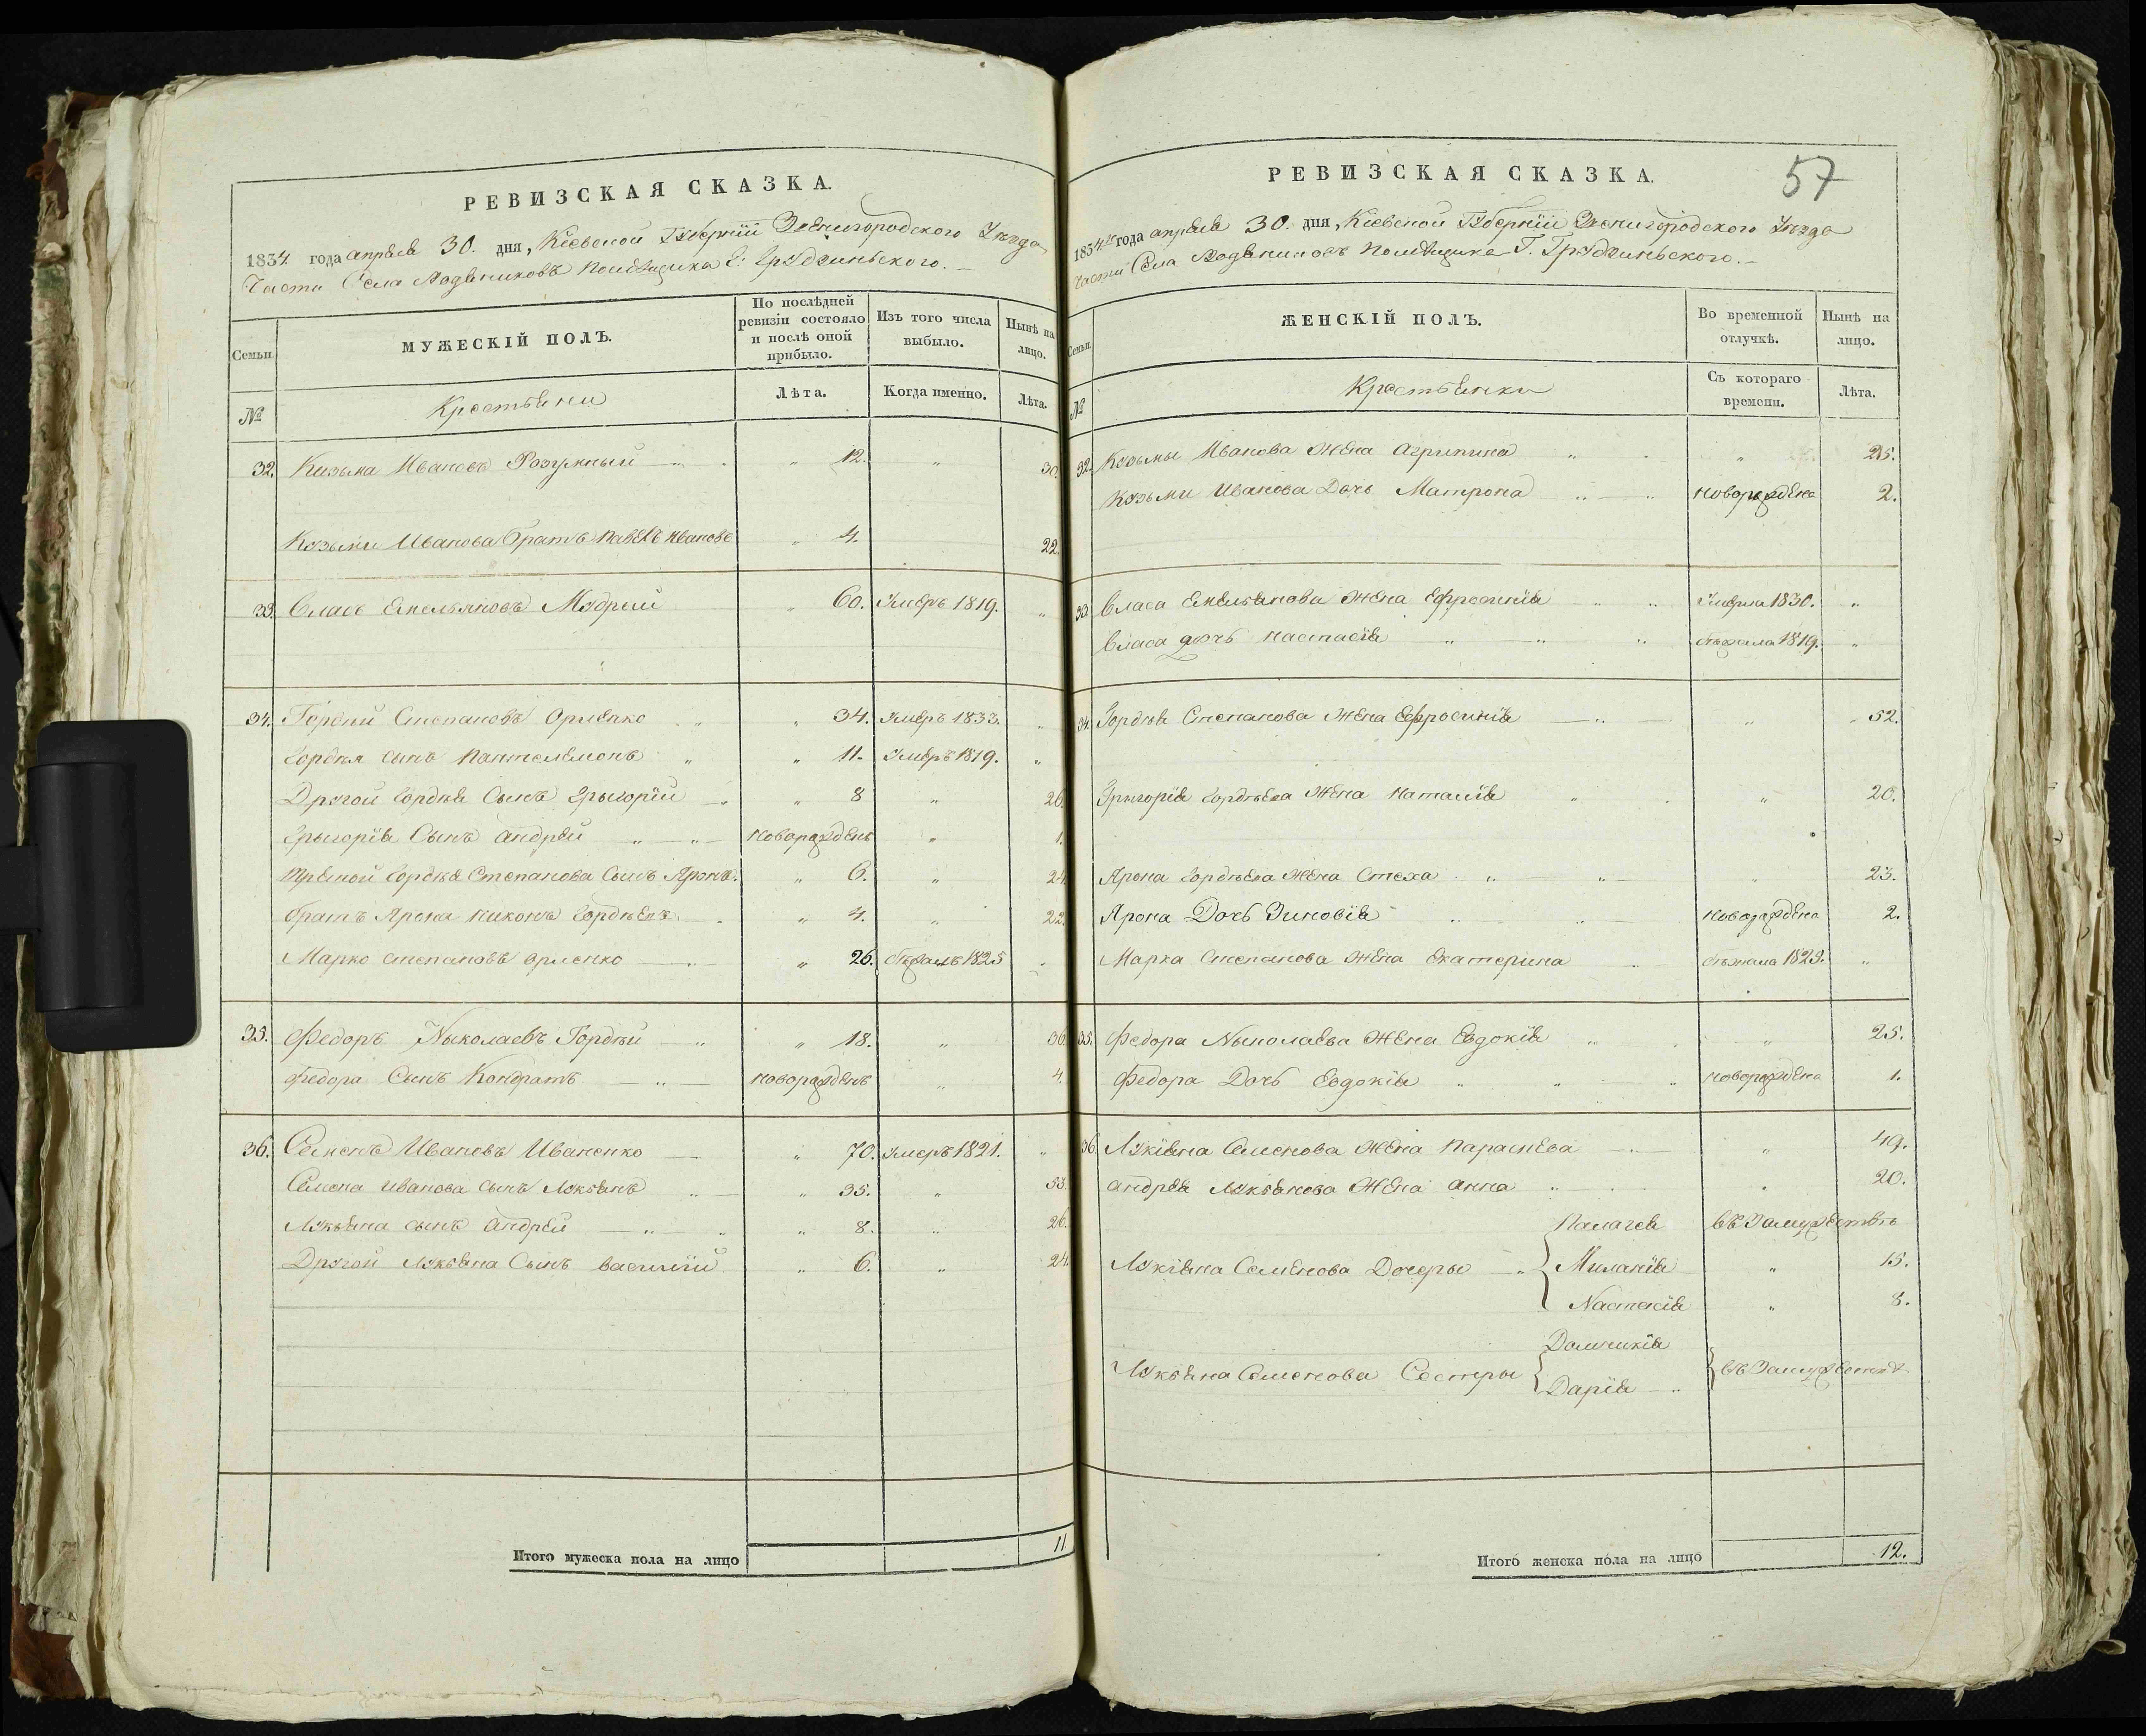 РЕВИЗСКАЯ СКАЗКА.
1834 года апреля 30. дня, Киевской Губернїи Звенигородского Уезда
Части Села Водяниковъ помѣщика Г: Грудзинского.
Семьи
МУЖЕСКІЙ ПОЛЪ.
По послѣдней ревизіи состояло и послѣ оной прибыло.
Изъ того числа выбыло.
Нынѣ на лицо.
№
Крестьяни
Лѣта.
Когда именно.
Лѣта.
32. Кизьма Ивановъ Розумный " 12. " 30.
Козьми Иванова Братъ Павелъ Ивановъ " 4. 22.
33. Власъ Емельяновъ Мудрый " 60. Умеръ 1819. "
34. Гордий Степановъ Орленко " 34. Умеръ 1833. "
Гордея сынъ Пантелемонъ " 11. Умеръ 1819. "
Другой Гордея Сынъ Грыгорїй " 8 " 26.
Грыгорїя Сынъ Андрей новорожденъ " 1.
Третой Гордея Степанова Сынъ Яронъ. " 6. " 24.
Братъ Ярона Никонъ Гордеевъ " 4. " 22.
Марко Степановъ Орленко " 26. бѣжалъ 1825 "
35. Федоръ Ныколаевъ Гордѣй " 18. " 36.
Федора Сынъ Кондратъ новорожденъ " 4.
36. Семенъ Ивановъ Иваненко " 70. умеръ 1821. "
Семена Иванова сынъ Лукьянъ " 35. " 53.
Лукьяна сынъ Андрей " 8. " 26.
Другой Лукьяна Сынъ Василїй " 6. " 24.
Итого мужеска пола на лицо 11
57
РЕВИЗСКАЯ СКАЗКА.
1834го года апреля 30. дня, Киевской Губернїи Звенигородского Уезда
части Села Водяниковъ помѣщика Г. Грудзинского.
Семьи.
ЖЕНСКІЙ ПОЛЪ.
Во временной отлучкѣ.
Нынѣ на лицо.
№
Крестьянки
Съ котораго времени.
Лѣта.
32. Козьмы Иванова Жена Агрипина " 25.
Козьми Иванова Дочь Матрона новорождена 2.
33. Власа Емельянова Жена Ефросинїя Умерла 1830. "
Власа дочь Настасїя бѣжала 1819. "
34. Гордѣя Степанова Жена Ефросинїя " 52.
Григорїя Гордѣева Жена Наталїя " 20.
Ярона Гордѣева Жена Стеха " 23.
Ярона Дочь Зиновїя новорождена 2.
Марка Степанова Жена Екатерина бѣжала 1825. "
35. Федора Ныколаева Жена Евдокїя " 25.
Федора Дочь Евдокїя новорождена 1.
36. Лукїяна Семенова Жена Параскева " 49.
Андрея Лукьянова Жена Анна " 20.
Палагея въ Замужествѣ
Лукїяна Семенова Дочеры Миланїя " 15.
Настасїя " 8.
Домникїя
Лукьяна Семенова Сестры въ Замужествѣ
Дарїя
Итого женска пола на лицо 12.